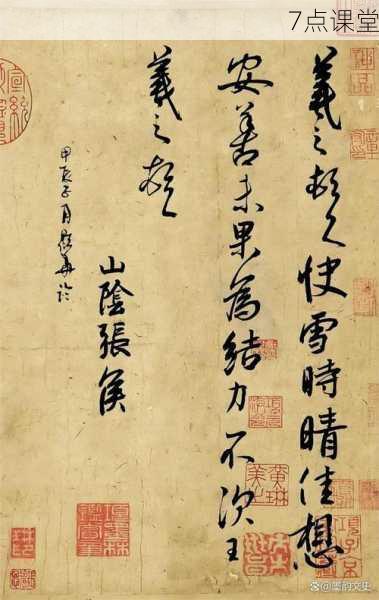 7点课堂
羲之頓首快雪時晴佳想
安善未果為結力不次王
羲之頓首
山陰張侯
甲辰子月
@墨韵文史